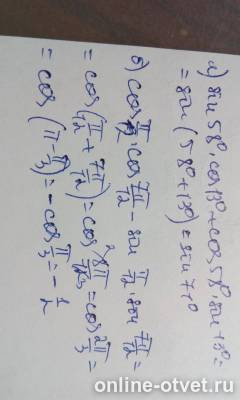 а) sin 58° · cos 13° + cos 58° · sin 13° =
= sin (58° + 13°) = sin 71°
б) cos π/12 · cos 7π/12 − sin π/12 · sin 7π/12 =
= cos (π/12 + 7π/12) = cos 8π/12 = cos 2π/3 =
= cos (π − π/3) = −cos π/3 = −1/2
online-otvet.ru